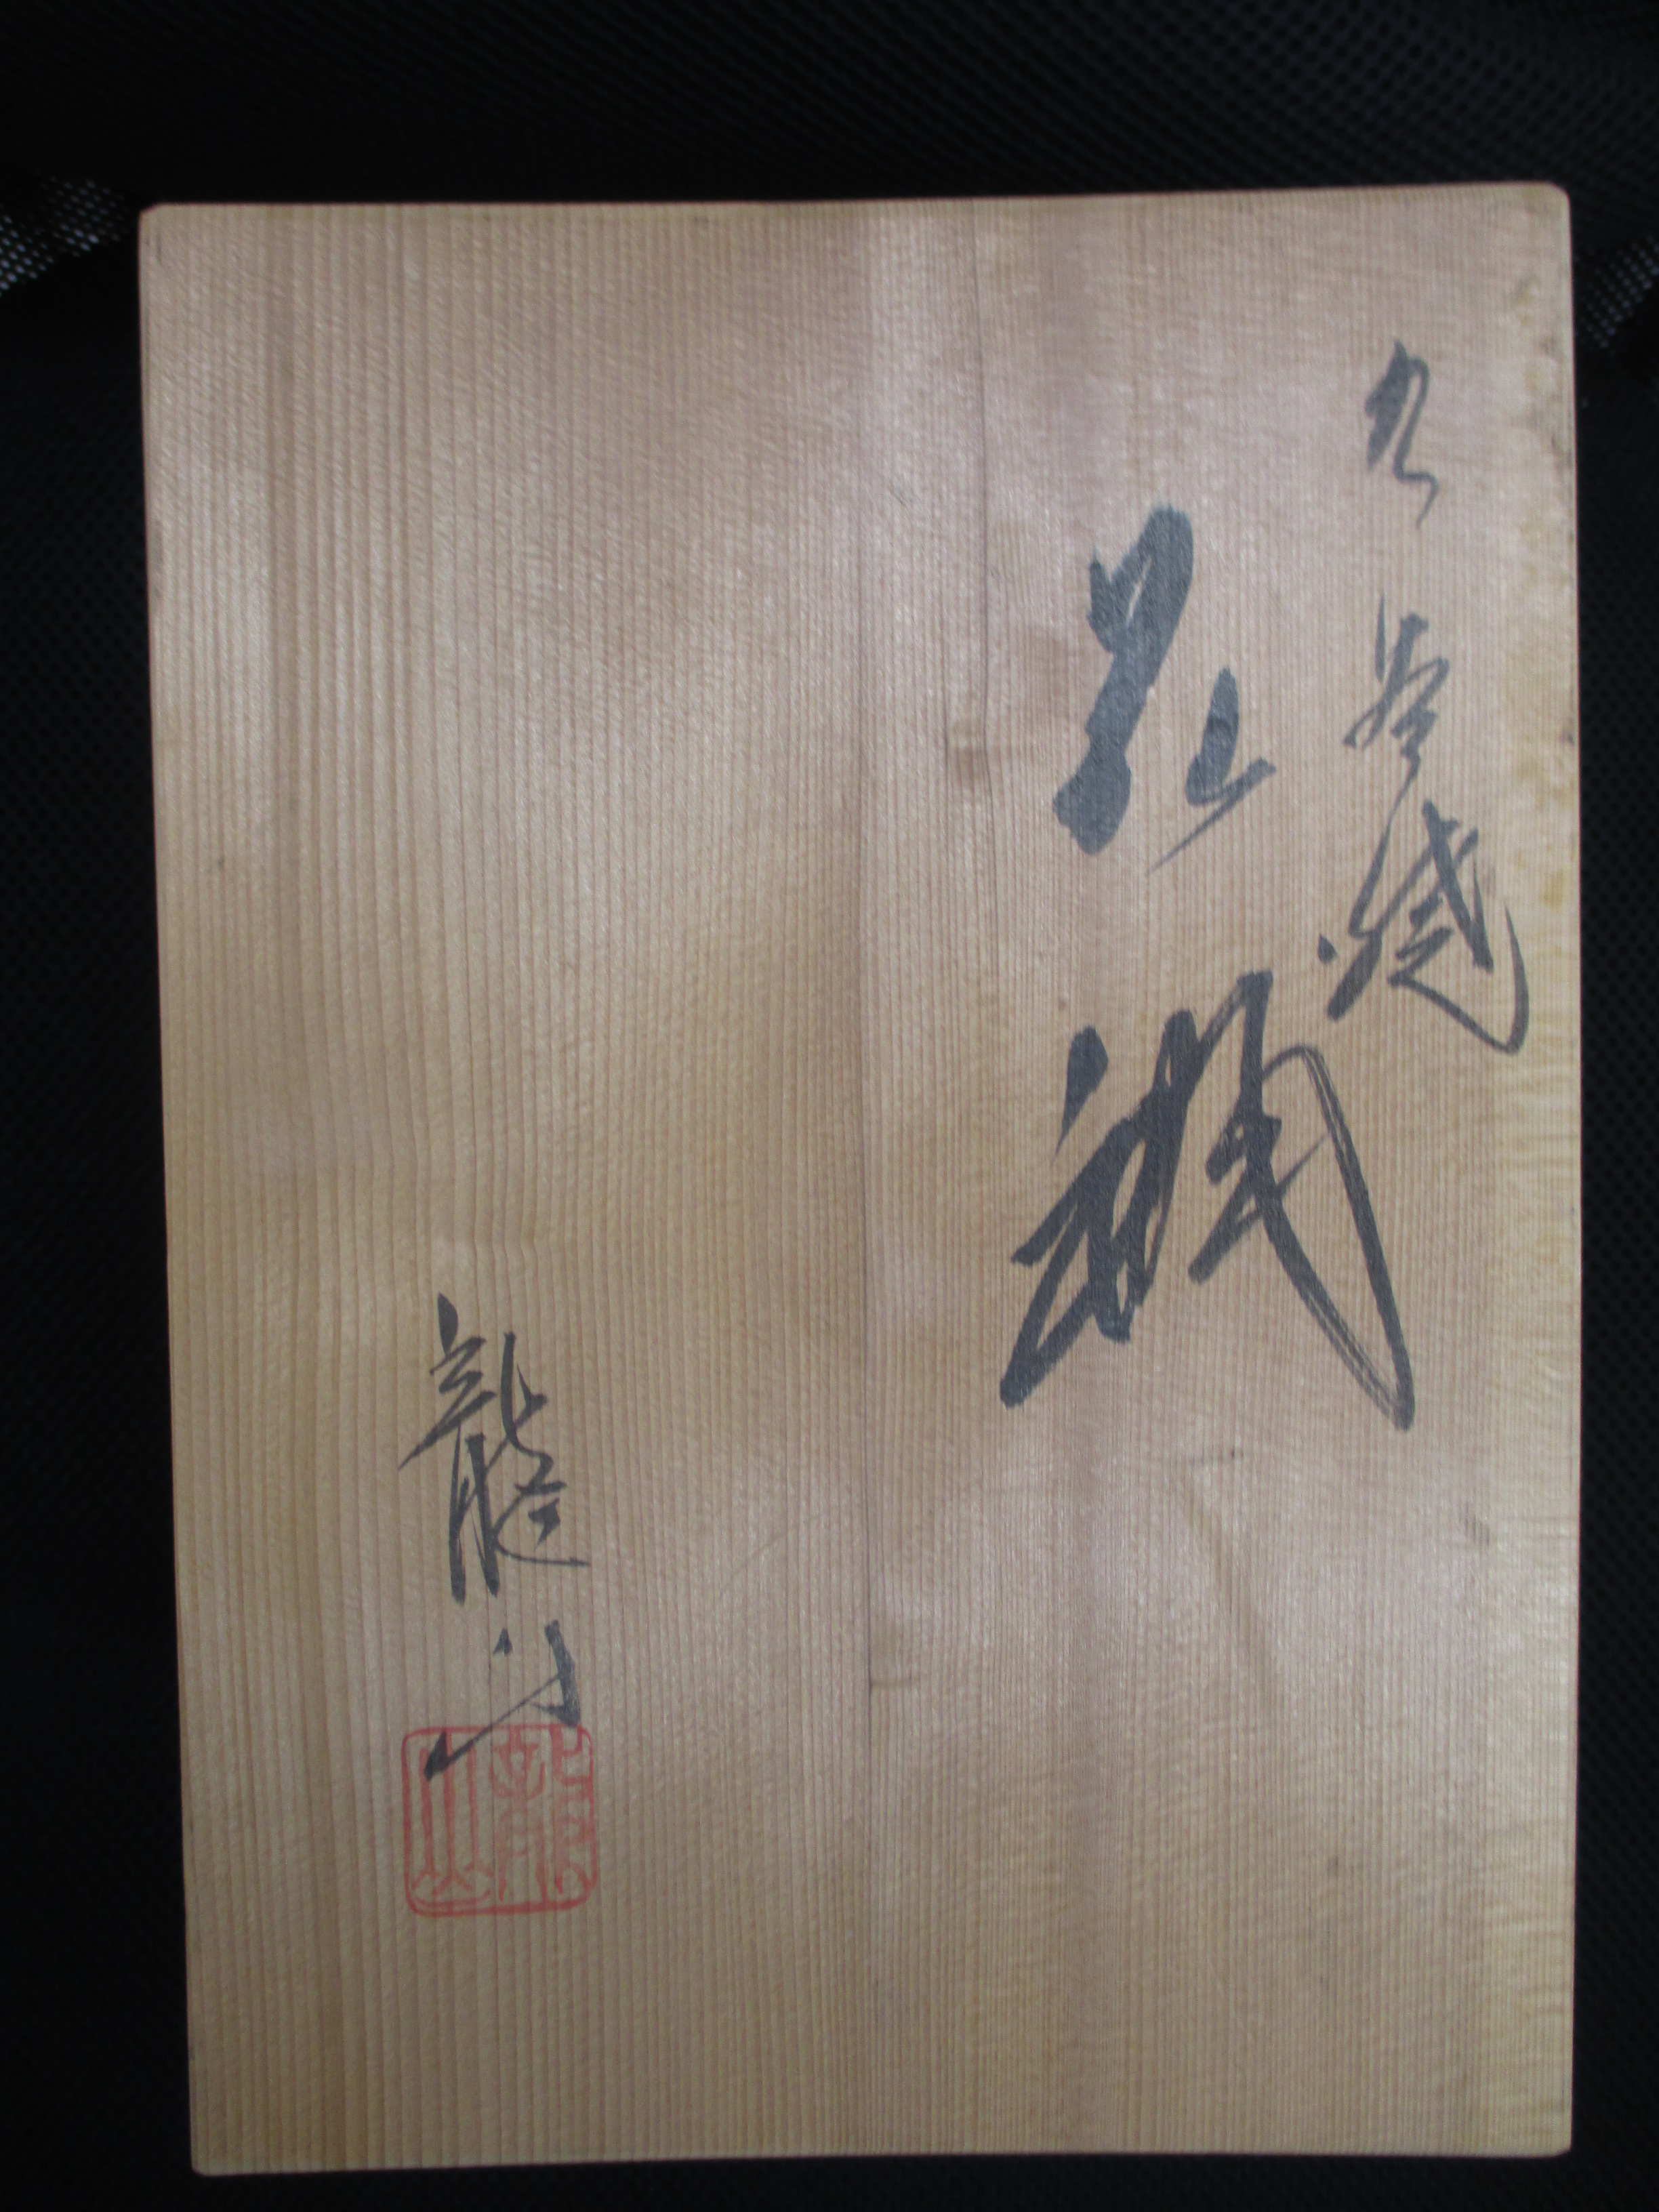 九谷焼
花瓶
龍山
龍山